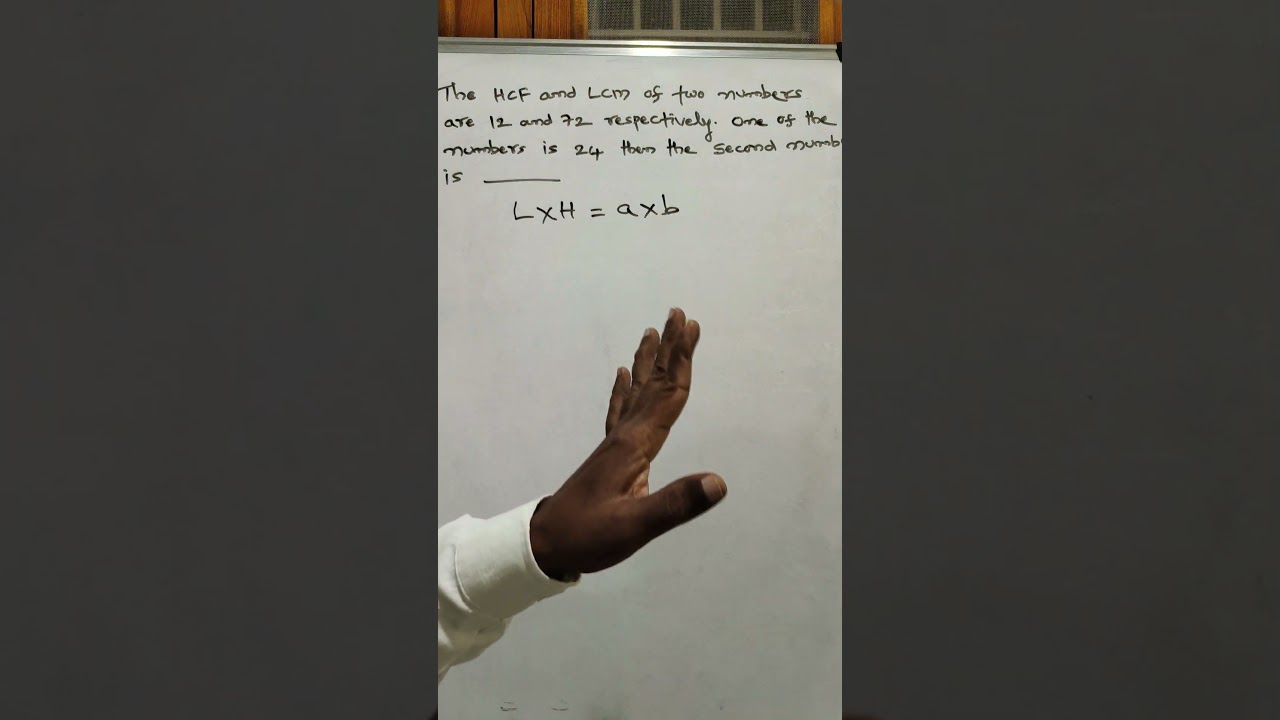 The HCF and LCM of two numbers
are 12 and 72 respectively. One of the
numbers is 24 then the second numb
is ______
L×H = a×b